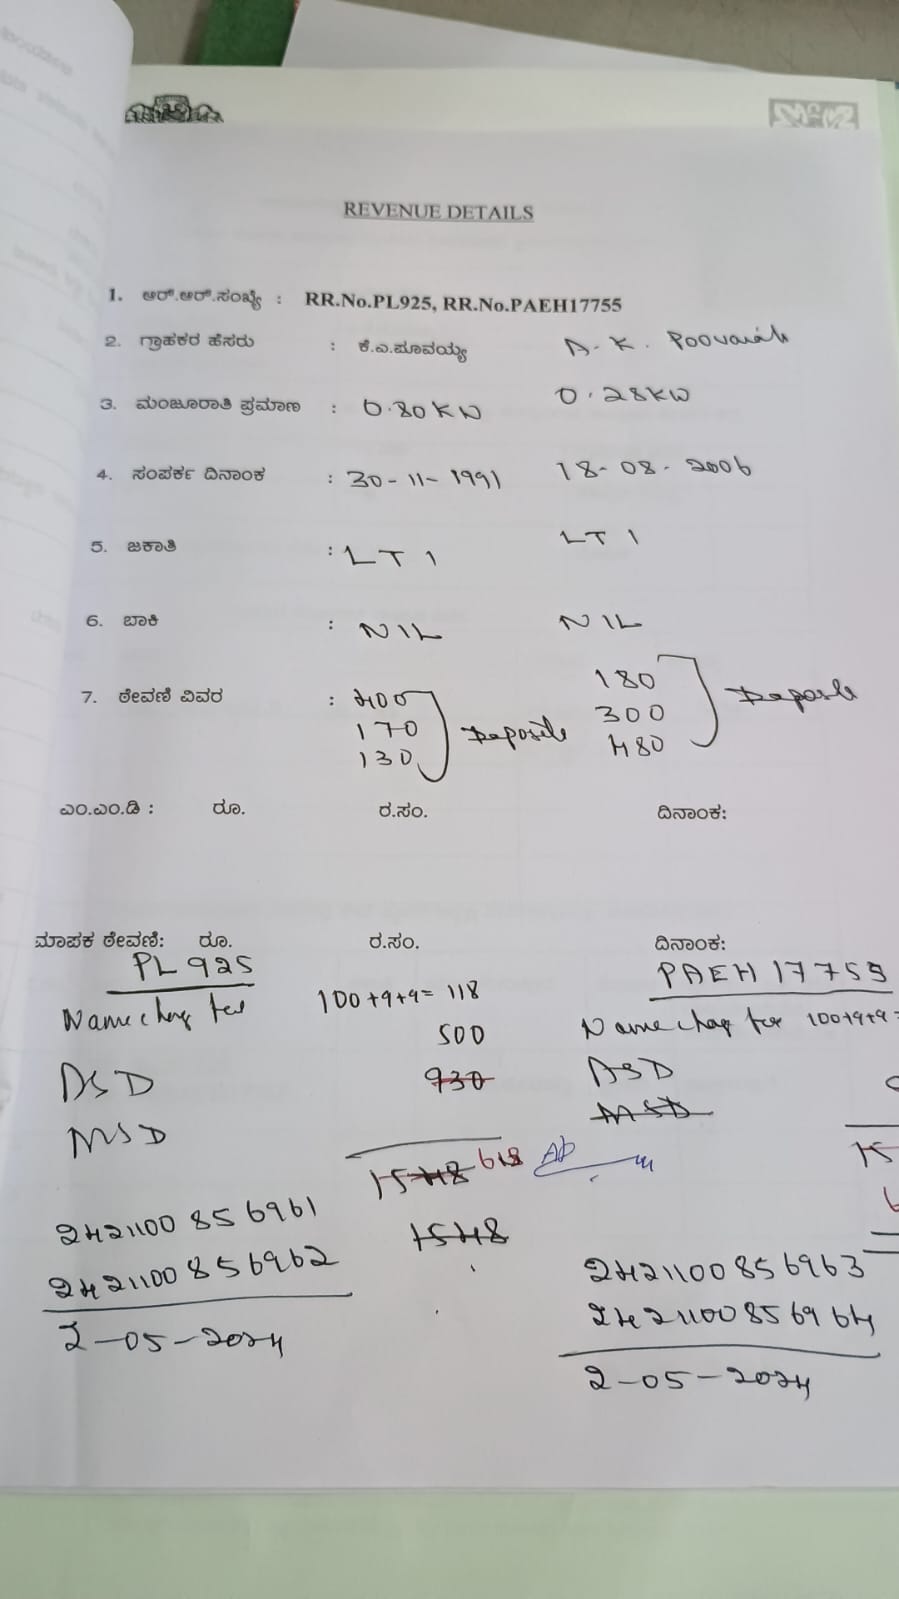 REVENUE DETAILS
1. ಆರ್.ಆರ್.ಸಂಖ್ಯೆ : RR.No.PL925, RR.No.PAEH17755
2. ಗ್ರಾಹಕರ ಹೆಸರು : ಕೆ.ಎ.ಪೂವಯ್ಯ A.K. Poovaiah
3. ಮಂಜೂರಾತಿ ಪ್ರಮಾಣ : 0.80KW 0.28KW
4. ಸಂಪರ್ಕ ದಿನಾಂಕ : 30-11-1991 18-08-2006
5. ಜಕಾತಿ : LT 1 LT 1
6. ಬಾಕಿ : NIL NIL
7. ಠೇವಣಿ ವಿವರ : 400 180
170 Deposite 300
130 480
ಎಂ.ಎಂ.ಡಿ : ರೂ. ರ.ಸಂ. ದಿನಾಂಕ:
ಮಾಪಕ ಠೇವಣಿ: ರೂ. ರ.ಸಂ. ದಿನಾಂಕ:
PL 925 PAEH 17755
Name chag fee 100+9+9= 118 Name chag fee 100+9+9=
500
ASD 930 ASD
MSD MSD
1548 618
1548
2421100856961 2421100856963
2421100856962 2421100856964
2-05-2024 2-05-2024